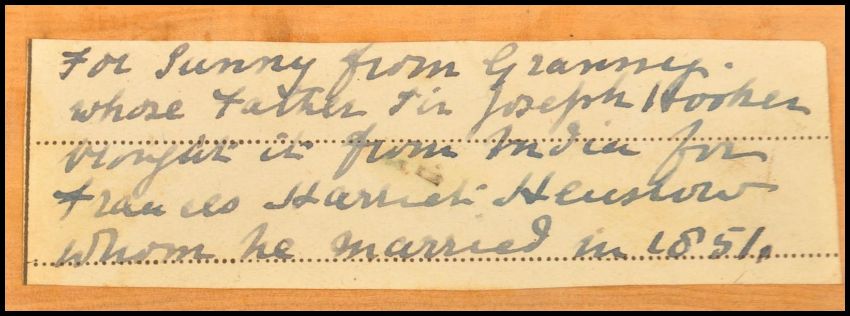 For Sunny from Granney.
whose Father Sir Joseph Hooker
brought it from India for
Frances Harriet Henslow
whom he married in 1851.